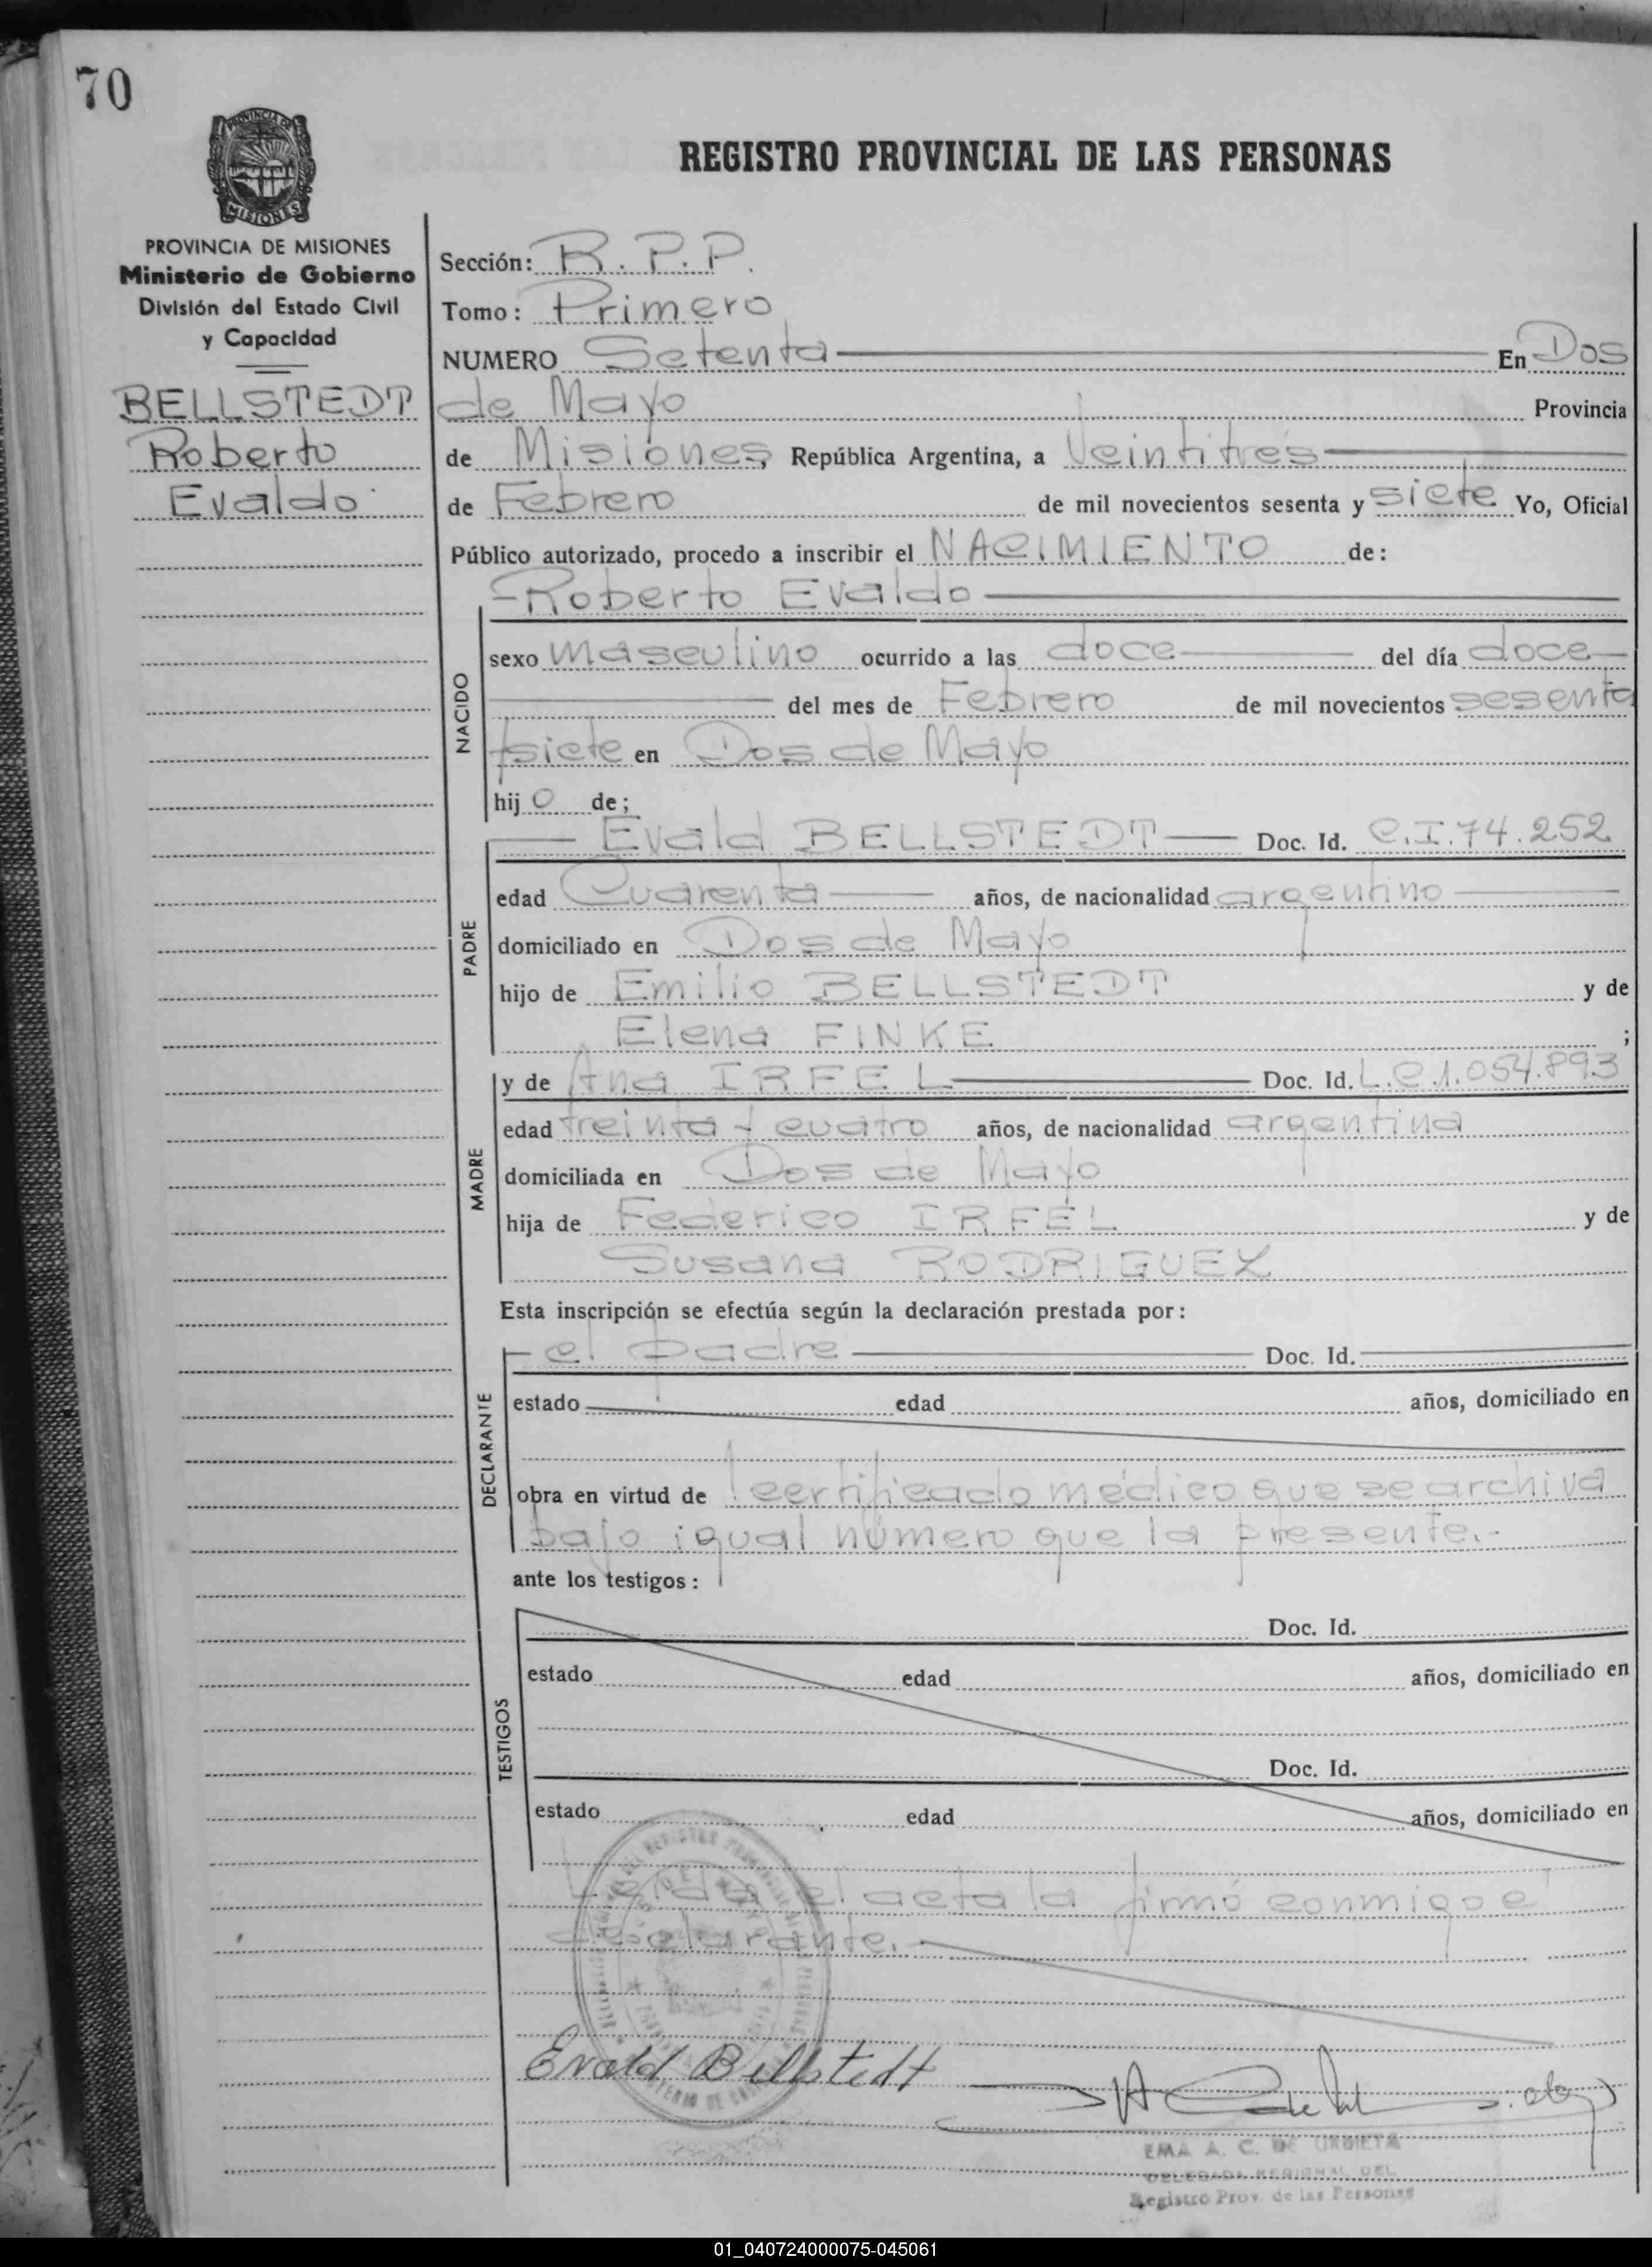 70
REGISTRO PROVINCIAL DE LAS PERSONAS
PROVINCIA DE MISIONES
MISIONES
PROVINCIA DE MISIONES
Ministerio de Gobierno
División del Estado Civil
y Capacidad
BELLSTEDT
Roberto
Evaldo
Sección: R.P.P.
Tomo: Primero
NUMERO Setenta En Dos
de Mayo Provincia
de Misiones, República Argentina, a Veintitrés
de Febrero de mil novecientos sesenta y siete Yo, Oficial
Público autorizado, procedo a inscribir el NACIMIENTO de:
Roberto Evaldo
NACIDO
sexo masculino ocurrido a las doce del día doce
del mes de Febrero de mil novecientos sesenta
y siete en Dos de Mayo
hij o de;
PADRE
Evald BELLSTEDT Doc. Id. C.I. 74.252
edad Cuarenta años, de nacionalidad argentino
domiciliado en Dos de Mayo
hijo de Emilio BELLSTEDT y de
Elena FINKE ;
MADRE
y de Ana IRFEL Doc. Id. L.C 1.054.893
edad treinta y cuatro años, de nacionalidad argentina
domiciliada en Dos de Mayo
hija de Federico IRFEL y de
Susana RODRIGUEZ
Esta inscripción se efectúa según la declaración prestada por:
DECLARANTE
el padre Doc. Id.
estado edad años, domiciliado en
obra en virtud de certificado médico que se archiva
bajo igual número que la presente.-
ante los testigos:
TESTIGOS
Doc. Id.
estado edad años, domiciliado en
Doc. Id.
estado edad años, domiciliado en
Leida el acta la firmó conmigo el
declarante.
Evald Bellstedt
EMA A. C. DE URBIETA
DELEGADA REGIONAL DEL
Registro Prov. de las Personas
01_040724000075-045061